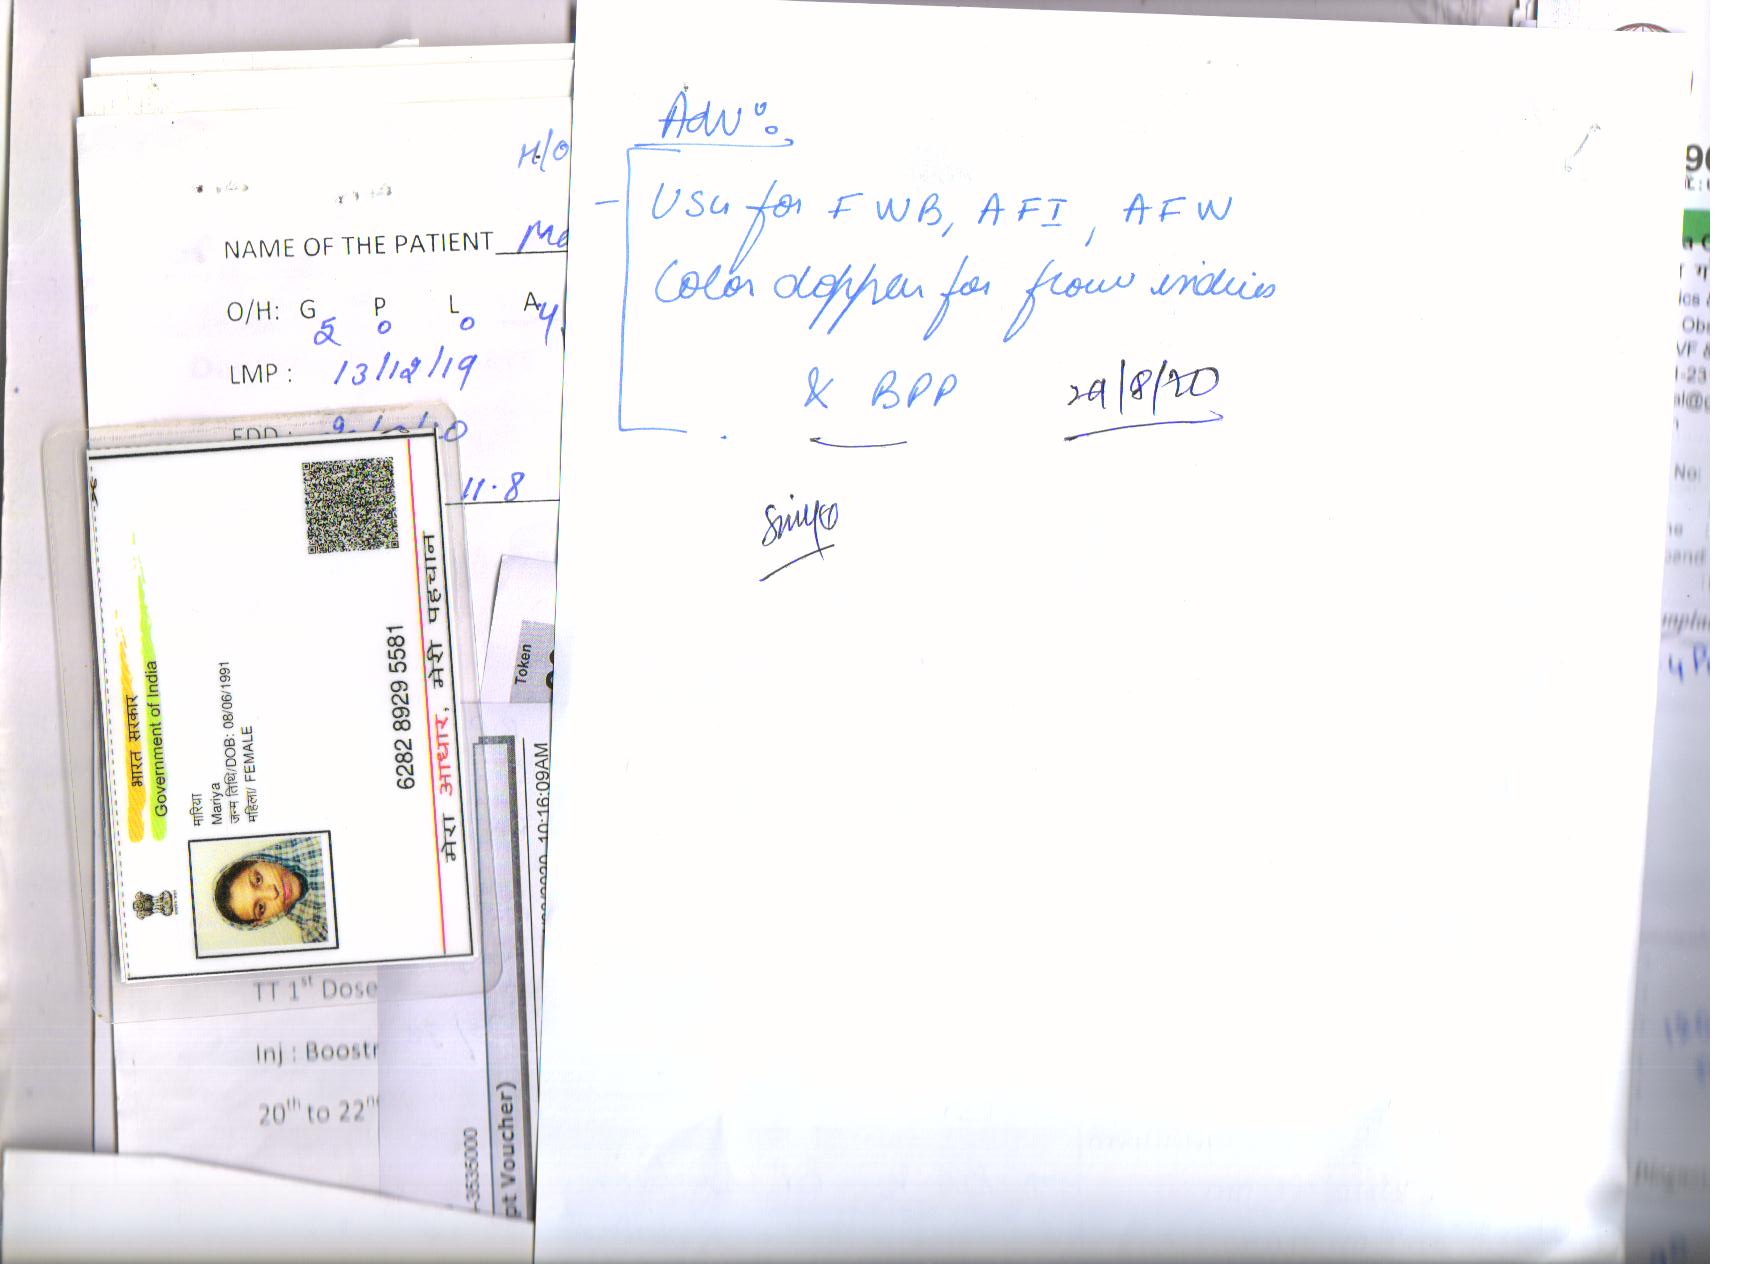 Adv:
- USG for FWB, AFI, AFW
Color doppler for flow indices
& BPP 29/8/20
H/O
NAME OF THE PATIENT
O/H: G5 P0 L0 A4
LMP : 13/12/19
EDD :
11.8
भारत सरकार
Government of India
मारिया
Mariya
जन्म तिथि/DOB: 08/06/1991
महिला/ FEMALE
6282 8929 5581
मेरा आधार, मेरी पहचान
Token
2020 10:16:09AM
pt Voucher)
-3535000
TT 1st Dose
Inj : Boostr
20th to 22n
No: